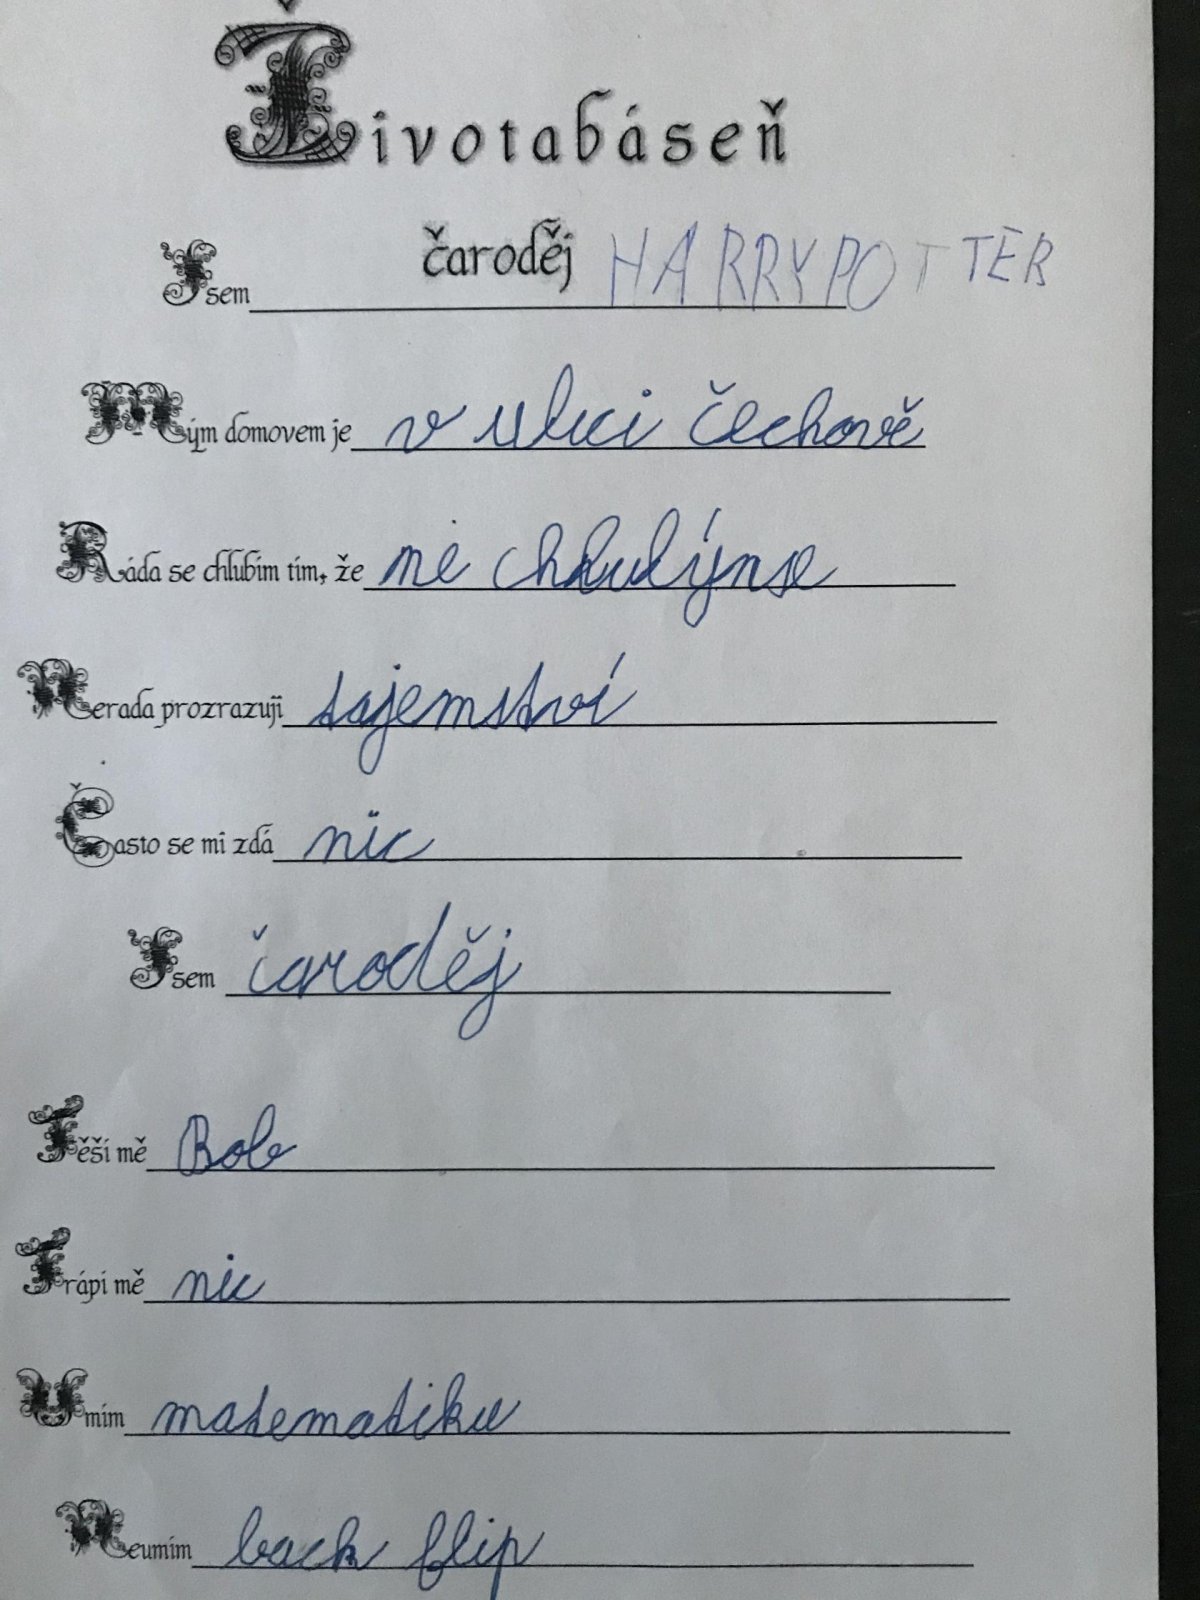 Životabáseň
Jsem čaroděj HARRY POTTER
Mým domovem je v ulici Čechově
Ráda se chlubím tím, že ne chlulýmse
Nerada prozrazuji tajemství
Často se mi zdá nic
Jsem čaroděj
Těší mě Bob
Trápí mě nic
Umím matematiku
Neumím back flip